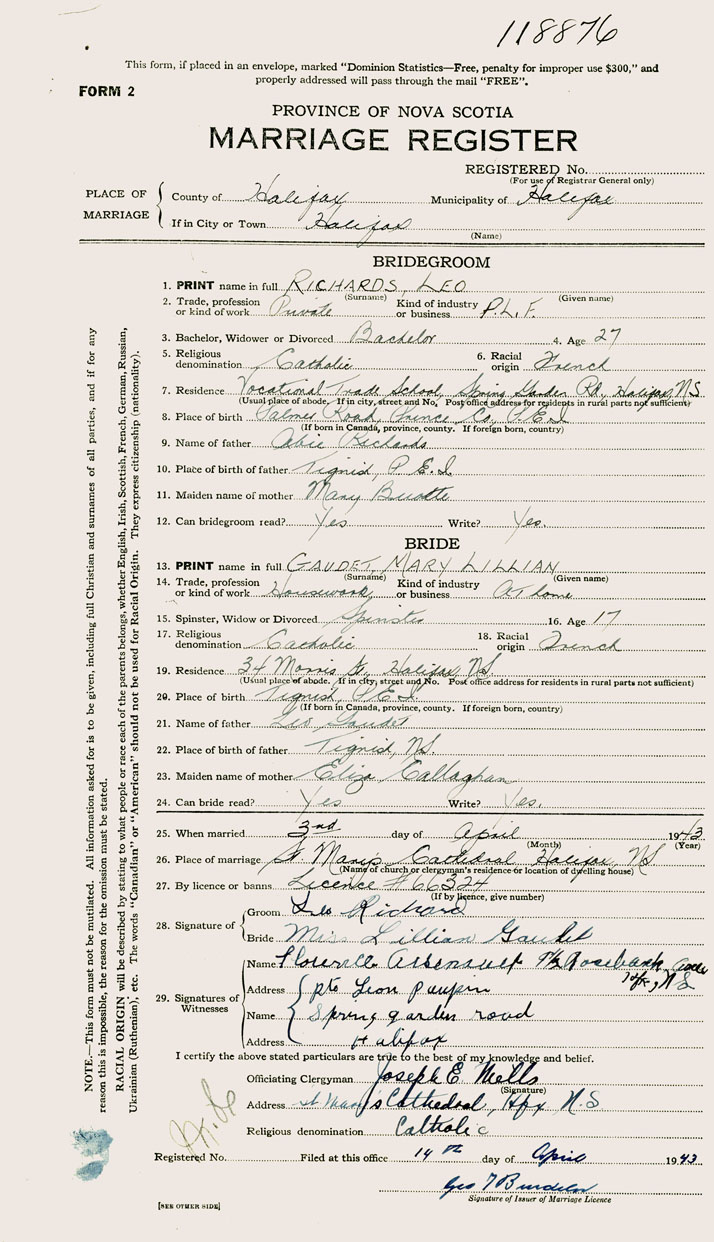 118876
This form, if placed in an envelope, marked "Dominion Statistics—Free, penalty for improper use $300," and
properly addressed will pass through the mail "FREE".
FORM 2
PROVINCE OF NOVA SCOTIA
MARRIAGE REGISTER
REGISTERED No.
(For use of Registrar General only)
PLACE OF MARRIAGE
County of Halifax Municipality of Halifax
If in City or Town Halifax
(Name)
BRIDEGROOM
1. PRINT name in full RICHARDS, LEO
(Surname) (Given name)
2. Trade, profession or kind of work Private Kind of industry or business P.L.F.
3. Bachelor, Widower or Divorced Bachelor 4. Age 27
5. Religious denomination Catholic 6. Racial origin French
7. Residence Vocational Trade School, Spring Garden Rd, Halifax, N.S.
(Usual place of abode. If in city, street and No. Post office address for residents in rural parts not sufficient)
8. Place of birth Palmer Road, Prince Co, P.E.I
(If born in Canada, province, county. If foreign born, country)
9. Name of father Richards
10. Place of birth of father Tignish, P.E.I.
11. Maiden name of mother Mary Buotte
12. Can bridegroom read? Yes Write? Yes.
BRIDE
13. PRINT name in full GAUDET, MARY LILLIAN
(Surname) (Given name)
14. Trade, profession or kind of work Housework Kind of industry or business At home
15. Spinster, Widow or Divorced Spinster 16. Age 17
17. Religious denomination Catholic 18. Racial origin French
19. Residence 34 Morris St, Halifax, N.S.
(Usual place of abode. If in city, street and No. Post office address for residents in rural parts not sufficient)
20. Place of birth Tignish, P.E.I
(If born in Canada, province, county. If foreign born, country)
21. Name of father Leo Gaudet
22. Place of birth of father Tignish, N.S.
23. Maiden name of mother Eliza Callaghan
24. Can bride read? Yes Write? Yes.
25. When married 3rd day of April 1943
(Month) (Year)
26. Place of marriage St. Mary's Cathedral Halifax, N.S
(Name of church or clergyman's residence or location of dwelling house)
27. By licence or banns Licence #66324
(If by licence, give number)
28. Signature of
Groom Leo Richard
Bride Miss Lillian Gaudet
29. Signatures of Witnesses
Name Arsenault Rosebank
Hfx, N S
Address Pte Leon
Name Spring garden road
Address Halifax
I certify the above stated particulars are true to the best of my knowledge and belief.
Officiating Clergyman Joseph E. Mells
(Signature)
Address St Mary's Cathedral, Hfx N S
Religious denomination Catholic
Registered No. Filed at this office 14th day of April 1943
Geo
Signature of Issuer of Marriage Licence
[SEE OTHER SIDE]
NOTE.—This form must not be mutilated. All information asked for is to be given, including full Christian and surnames of all parties, and if for any
reason this is impossible, the reason for the omission must be stated.
RACIAL ORIGIN will be described by stating to what people or race each of the parents belongs, whether English, Irish, Scottish, French, German, Russian,
Ukrainian (Ruthenian), etc. The words "Canadian" or "American" should not be used for Racial Origin. They express citizenship (nationality).